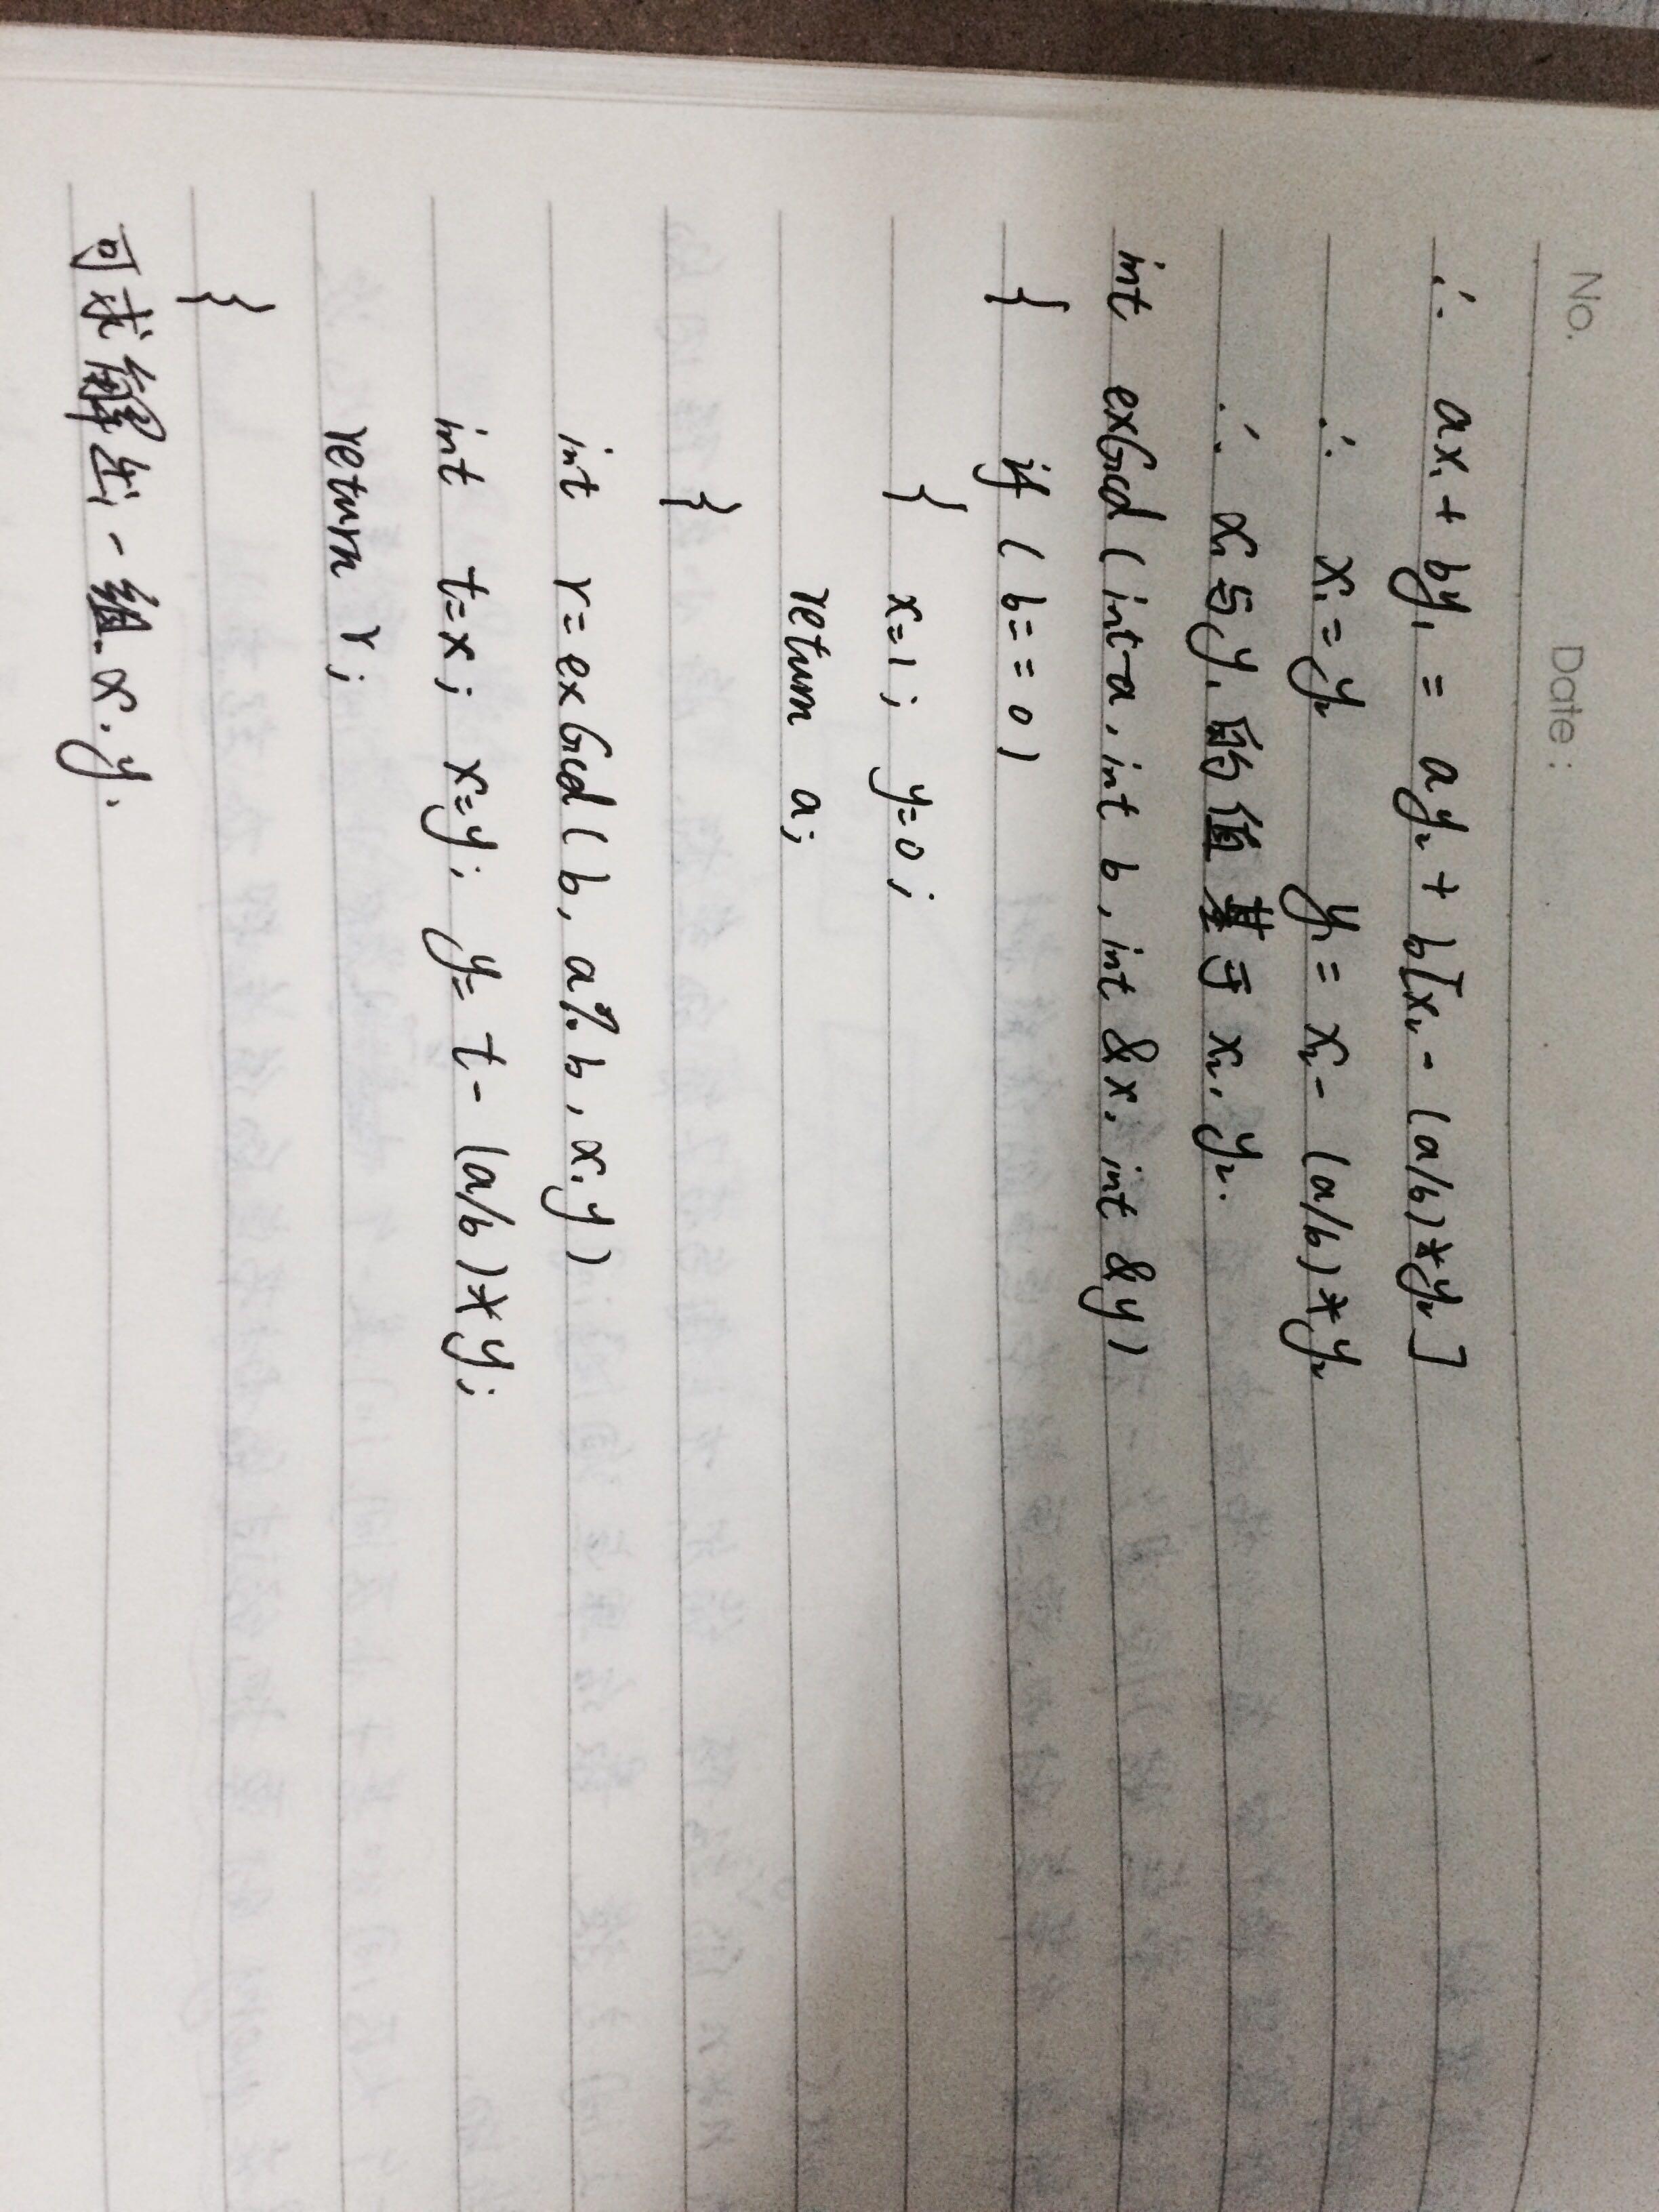 No.
Date:
∴ ax₁ + by₁ = ay₂ + b[x₂ - (a/b)*y₂]
∴ x₁=y₂ y₁= x₂ - (a/b)*y₂
∴ x₁与y₁的值基于x₂,y₂.
int exGcd(int a, int b, int &x, int &y)
{ if (b==0)
{ x=1; y=0;
return a;
}
int r=exGcd(b, a%b, x, y)
int t=x; x=y; y= t - (a/b)*y;
return r;
}
可求解出一组x,y.